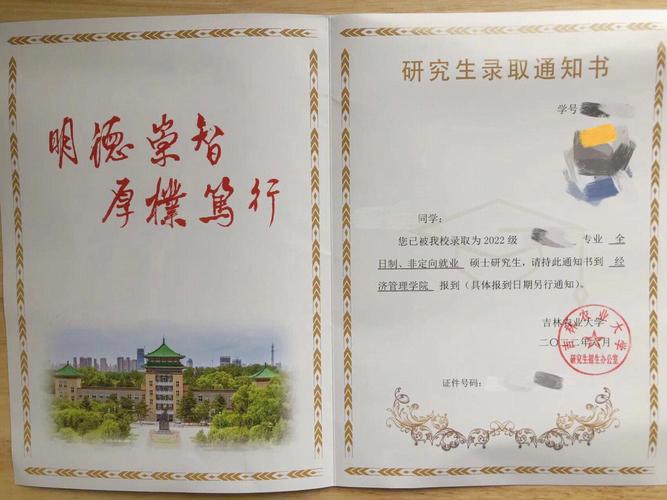 明德崇智
厚樸篤行
研究生录取通知书
学号
同学：
您已被我校录取为2022级 专业 全
日制、非定向就业 硕士研究生，请持此通知书到 经
济管理学院 报到（具体报到日期另行通知）。
吉林农业大学
二〇二二年六月
吉林农业大学
研究生招生办公室
证件号码：